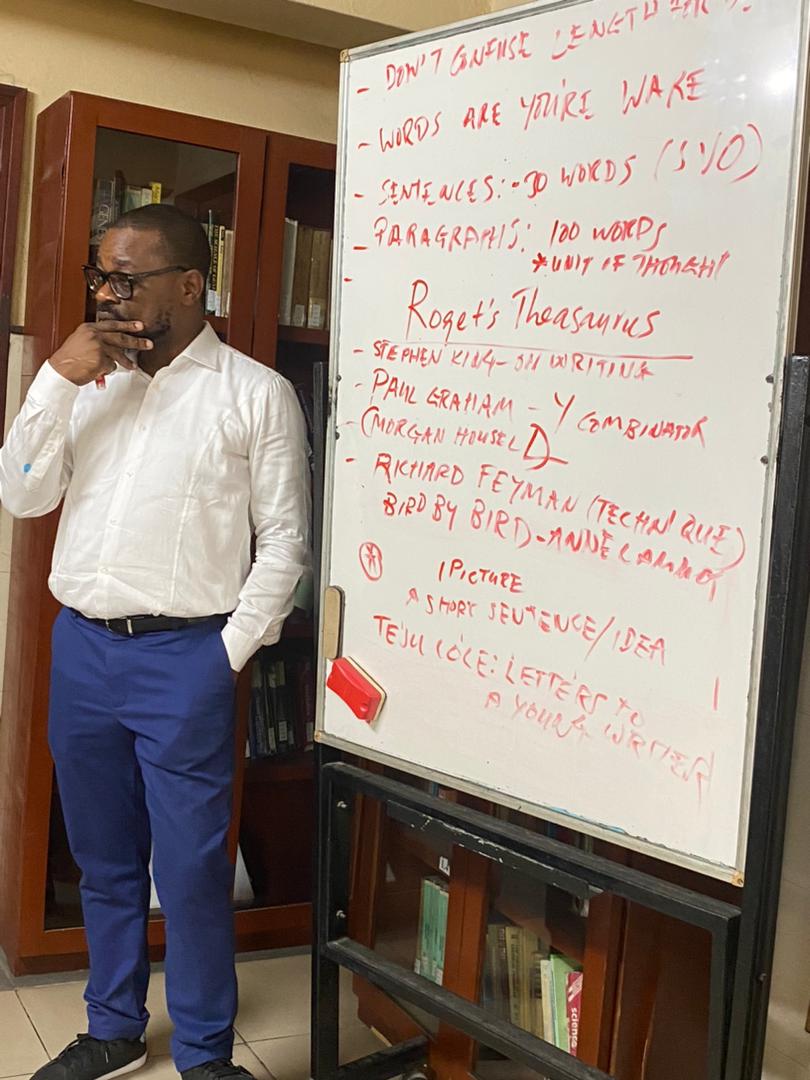 - DON'T CONFUSE LENGTH FOR
- WORDS ARE YOU'RE WAKE
- SENTENCES: -30 WORDS (SVO)
- PARAGRAPHS: 100 WORDS
* UNIT OF THOUGHT
-
Roget's Theasaurus
- STEPHEN KING - ON WRITING
- PAUL GRAHAM - Y COMBINATOR
- (MORGAN HOUSEL)
- RICHARD FEYMAN (TECHNIQUE)
BIRD BY BIRD - ANNE LAMMOT
* 1 PICTURE
A SHORT SENTENCE/IDEA
TEJU COLE: LETTERS TO
A YOUNG WRITER
science